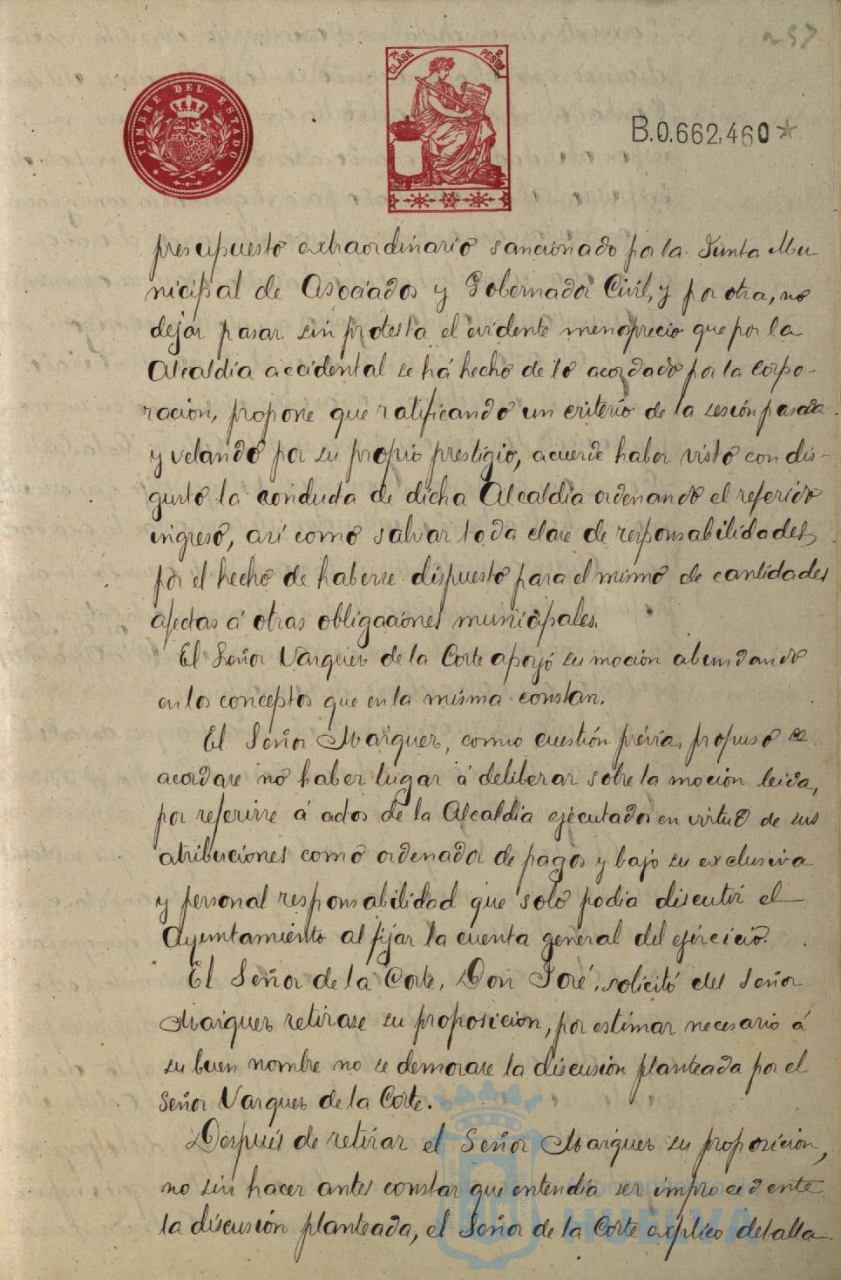 257
TIMBRE DEL ESTADO
7ª CLASE 2 PESETAS
B.0.662,460*
presupuesto extraordinario sancionado por la Junta Mu-
nicipal de Asociados y Gobernador Civil, y por otra, no
dejar pasar sin protesta el evidente menoprecio que por la
Alcaldía accidental se há hecho de lo acordado por la Corpo-
ración, propone que ratificando un criterio de la sesión pasada
y velando por su propio prestigio, acuerde haber visto con dis-
gusto la conducta de dicha Alcaldía ordenando el referido
ingreso, así como salvar toda clase de responsabilidades,
por el hecho de haberse dispuesto para el mismo de cantidades
afectas á otras obligaciones municipales.
El Señor Vazquez de la Corte apoyó su moción abundando
en los conceptos que en la misma constan.
El Señor Maiquez, como cuestión prévia, propuso se
acordase no haber lugar á deliberar sobre la moción leida,
por referirse á actos de la Alcaldía ejecutados en virtud de sus
atribuciones como ordenador de pagos y bajo su exclusiva
y personal responsabilidad que solo podia discutir el
Ayuntamiento al fijar la cuenta general del ejercicio.
El Señor de la Corte, Don José, solicitó del Señor
Maiquez retirase su proposición, por estimar necesario á
su buen nombre no se demorase la discusión planteada por el
Señor Vazquez de la Corte.
Después de retirar el Señor Maiquez su proposición,
no sin hacer antes constar que entendía ser improcedente
la discusión planteada, el Señor de la Corte explicó detalla
HUELVA